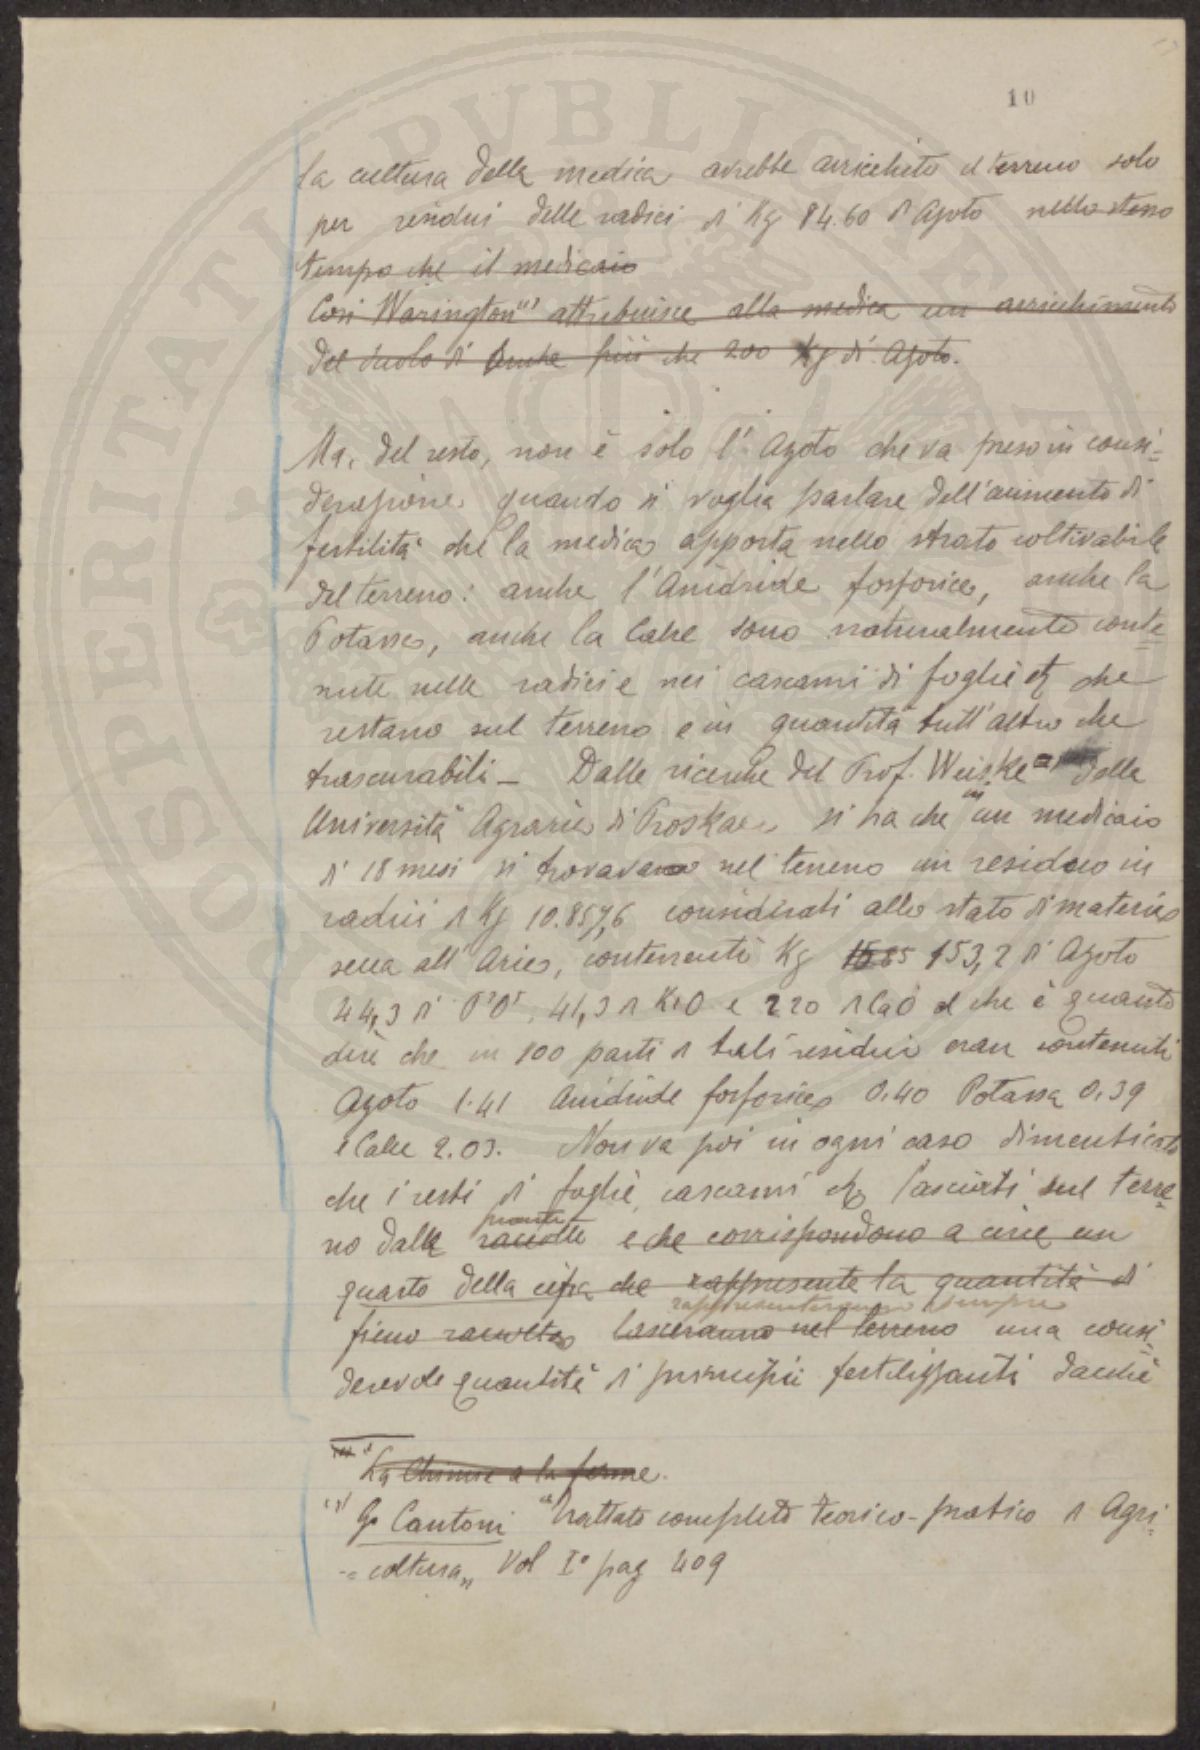 10
la cultura della medica avrebbe arricchito il terreno solo
per residui delle radici di Kg 84.60 di Azoto nello stesso
tempo che il medicaio
Così Warington(1) attribuisce alla medica un arricchimento
del suolo di anche più che 200 Kg di Azoto.
Ma, del resto, non è solo l'Azoto che va preso in consi-
derazione quando si voglia parlare dell'aumento di
fertilità che la medica apporta nello strato coltivabile
del terreno: anche l'Anidride fosforica, anche la
Potassa, anche la Calce sono naturalmente conte-
nute nelle radici e nei cascami di foglie etc che
restano sul terreno e in quantità tutt'altro che
trascurabili – Dalle ricerche del Prof. Weiske della
Università Agraria di Proskau si ha che in un medicaio
di 18 mesi si trovavano nel terreno un residuo in
radici di Kg 10.857,6 considerati allo stato di materia
secca all'Aria, contenenti Kg 153,2 di Azoto
44,3 di P2O5, 41,3 di K2O e 220 di CaO il che è quanto
dire che in 100 parti di tali residui eran contenuti
Azoto 1.41 Anidride fosforica 0.40 Potassa 0.39
e Calce 2.03. Non va poi in ogni caso dimenticato
che i resti di foglie, cascami etc lasciati sul terre-
no dalle raccolte piante e che corrispondono a circa un
quarto della cifra che rappresenta la quantità di
rappresenteranno sempre
fieno raccolto lasceranno nel terreno una consi-
derevole quantità di principii fertilizzanti dacchè
La Chimie a la ferme.
(1) G. Cantoni "Trattato completo teorico-pratico di Agri-
coltura„ Vol I° pag 409
PROSPERITATI PUBLICAE